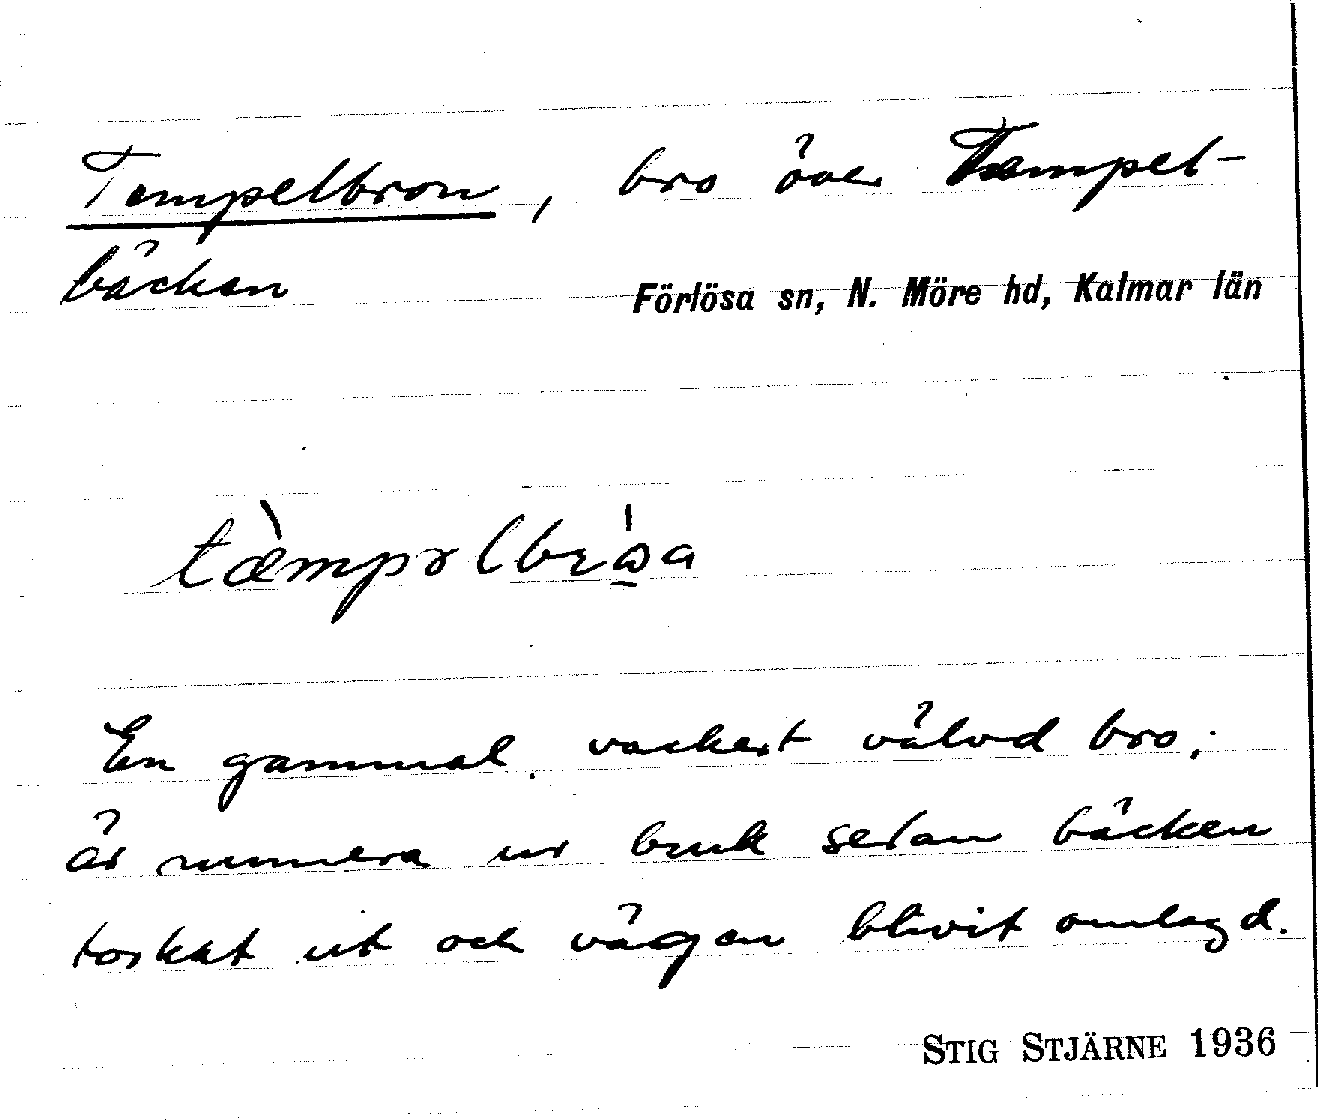 Tempelbron, bro över Tempel-
bäcken
Förlösa sn, N. Möre hd, Kalmar län
tæ̀mpəlbrω̲̍a
En gammal, vackert välvd bro;
är numera ur bruk sedan bäcken
torkat ut och vägen blivit omlagd.
STIG STJÄRNE 1936